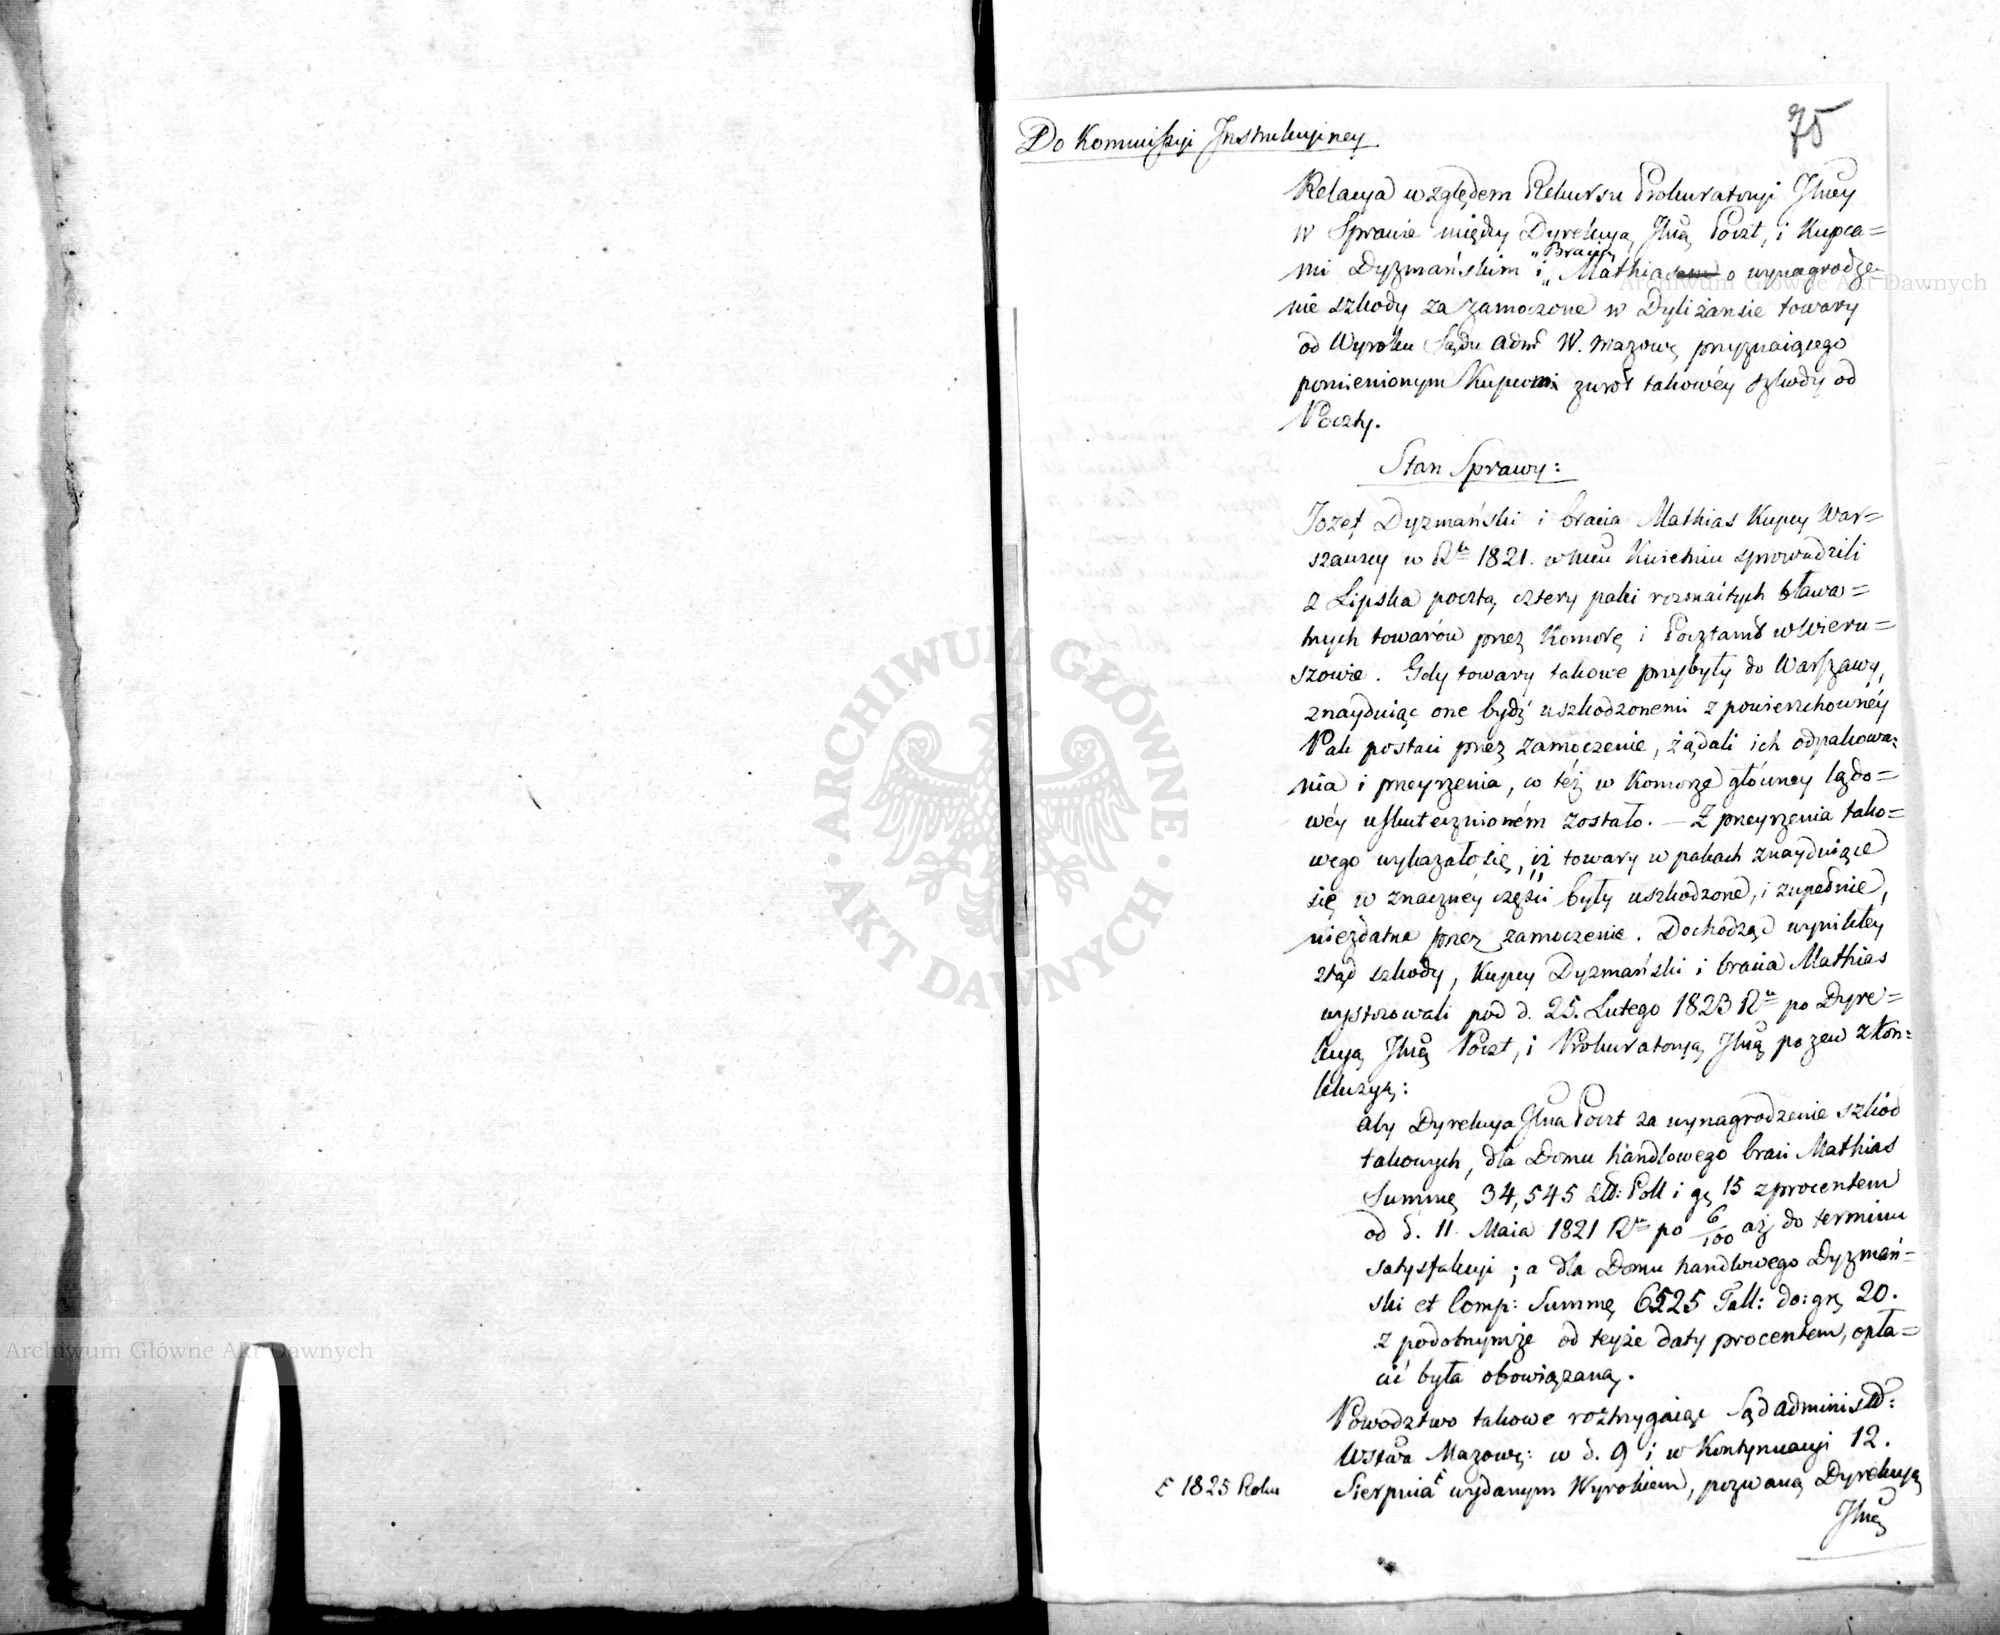 75
Do Kommissyi Instrukcyiney
Relacya względem Rekursu Prokuratoryi Jlney
w Sprawie między Dyrekcyą Jlną Poczt, i Kupca=
mi Dyzmańskim i „Braćmi„ Mathiasem o wynagrodze-
nie szkody za zamoczone w Dyliżansie towary
od Wyroku Sądu Adm W. Mazow: przyznaiącego
pomienionym Kupcom zwrot takowéy szkody od
Poczty.
Stan Sprawy:
Jozef Dyzmański i bracia Mathias Kupcy War=
szawscy w Rku 1821. w mcu Kwietniu sprowadzili
z Lipska pocztą cztery paki rozmaitych bława=
tnych towarów przez Komorę i Pocztamt w Wieru=
szowie. Gdy towary takowe przybyły do Warszawy,
znayduiąc one bydź uszkodzonemi z powierzchownéy
Pak postaci przez zamoczenie, żądali ich odpakowa=
nia i przeyrzenia, co też w Komorze główney lądo=
wéy uskutecznioném zostało. — Z przeyrzenia tako=
wego wykazało się, iż towary w pakach znayduiące
się w znacznéy części były uszkodzone, i zupełnie,
niezdatne przez zamoczenie. Dochodząc wynikłey
ztąd szkody, Kupcy Dyzmański i bracia Mathias
wystosowali pod d. 25. Lutego 1823 Rku po Dyre=
kcyą Jlną Poczt, i Prokuratoryą Jlną pozew z kon=
kluzyą:
aby Dyrekcya Jlna Poczt za wynagrodzenie szkód
takowych, dla Domu handlowego braci Mathias
Summę 34,545 Złł: Poll i gr 15 z procentem
od d. 11. Maia 1821 Rku po 6/100 aż do terminu
satysfakcyi; a dla Domu handlowego Dyzmań=
ski et Comp: Summę 6525 Tall: do: gr 20.
z podobnymże od teyże daty procentem, opła=
cić była obowiązaną.
Powodztwo takowe roztrzygaiąc Sąd administr:
Wstwa Mazow: w d. 9 i w Kontynuacyi 12.
Sierpnia ⋷ wydanym Wyrokiem, pozwaną Dyrekcyą
⋷ 1825 Roku
Jlną
Archiwum Główne Akt Dawnych
Archiwum Główne Akt Dawnych
ARCHIWUM GŁÓWNE AKT DAWNYCH